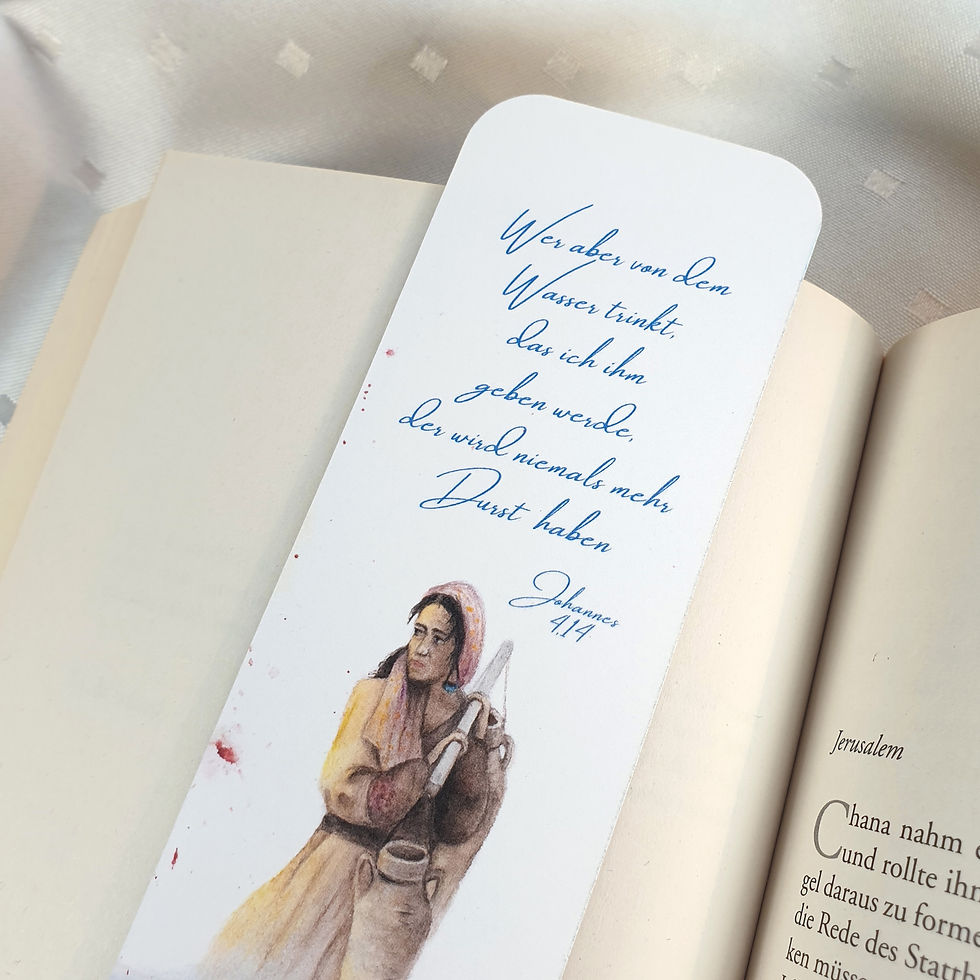 Wer aber von dem
Wasser trinkt,
das ich ihm
geben werde,
der wird niemals mehr
Durst haben
Johannes
4,14
Jerusalem
Chana nahm
und rollte ihr
gel daraus zu forme
die Rede des Statth
ken müsse